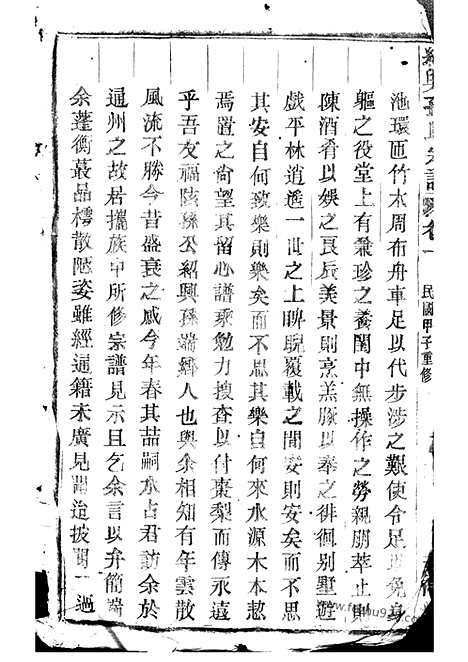 紹興孫氏宗譜 卷一 民國甲子重修
池環匝竹木周布舟車足以代步涉之艱使令足以免身
軀之役堂上有兼珍之養閨中無操作之勞親朋萃止則
陳酒肴以娛之良辰美景則烹羔豚以奉之徘徊別墅遊
戲平林逍遙一世之上睥睨覆載之間安則安矣而不思
其安自何致樂則樂矣而不思其樂自何來水源木本愸
焉置之尚望其留心譜乘勉力搜查以付棗梨而傳永遠
乎吾友福陔孫公紹興孫端鄉人也與余相知有年雲散
風流不勝今昔盛衰之感今年春其喆嗣水占君訪余於
通州之故居攜族中所修宗譜見示且乞余言以弁簡端
余蓬衡蕞品樗散陋姿雖經通籍未廣見聞迨披閱一過